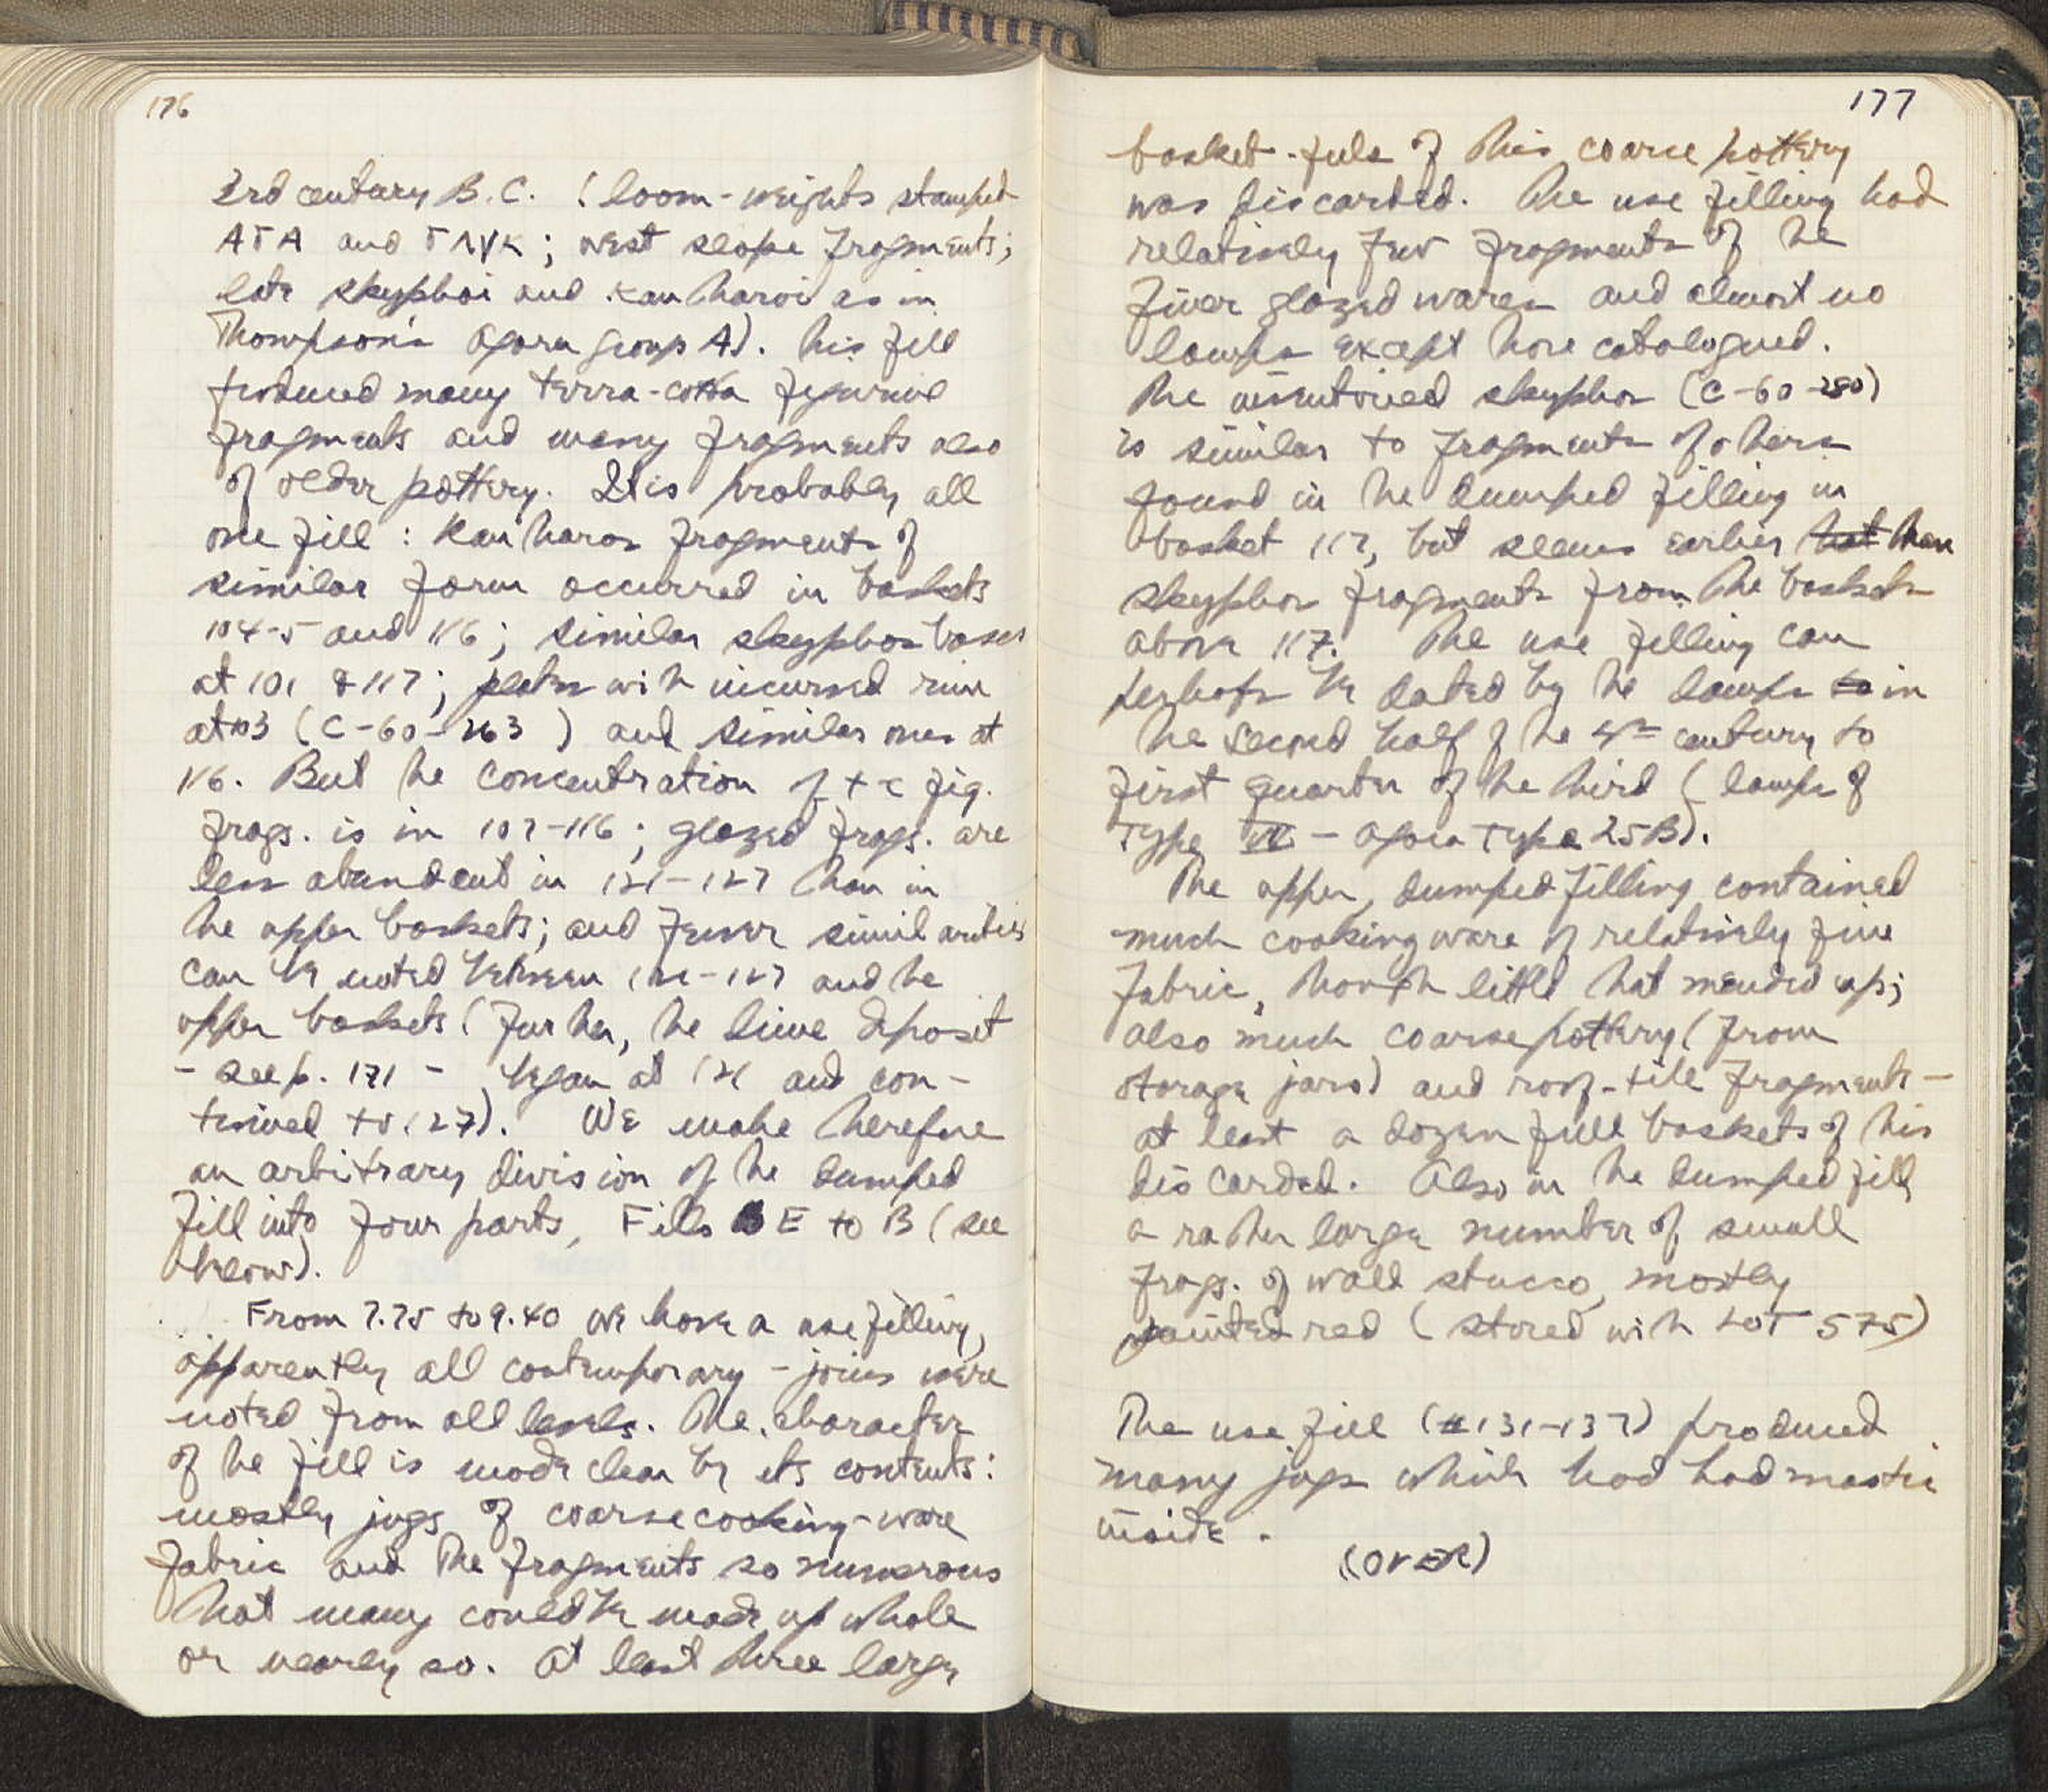 176
3rd century B.C. (loom-weights stamped
ATA and ΓΛΥΚ; west slope fragments;
late skyphoi and kantharoi as in
Thompson's Agora Group A). This fill
produced many terra-cotta figurine
fragments and many fragments also
of older pottery. It is probably all
one fill: Kantharos fragments of
similar form occurred in baskets
104-5 and 116; similar skyphos bases
at 101 & 117; plates with incurved rim
at 103 (C-60-263) and similar ones at
116. But the concentration of t c fig.
frags. is in 107-116; glazed frags. are
less abundant in 121-127 than in
the upper baskets; and fewer similarities
can be noted between 121-127 and the
upper baskets (further, the lime deposit
- see p. 171 - began at 121 and con-
tinued to 127). We make therefore
an arbitrary division of the dumped
fill into four parts, Fills E to B (see
below).
From 7.75 to 9.40 we have a use filling,
apparently all contemporary - joins were
noted from all levels. The character
of the fill is made clear by its contents:
mostly jugs of coarse cooking-ware
fabric and the fragments so numerous
that many could be made up whole
or nearly so. At least three large
177
basket-fuls of this coarse pottery
was discarded. The use filling had
relatively few fragments of the
finer glazed wares and almost no
lamps except those catalogued.
The inventoried skyphos (C-60-280)
is similar to fragments of others
found in the dumped filling in
basket 117, but seems earlier that than
skyphos fragments from the baskets
above 117. The use filling can
perhaps be dated by the lamps to in
the second half of the 4th century to
first quarter of the third (lamps of
Type VII - Agora Type 25B).
The upper, dumped filling contained
much cooking ware of relatively fine
fabric, though little that mended up;
also much coarse pottery (from
storage jars) and roof-tile fragments -
at least a dozen full baskets of this
discarded. Also in the dumped fill
a rather large number of small
frags. of wall stucco, mostly
painted red (stored with LOT 575)
The use fill (#131-137) produced
many jugs which had had mastic
inside.
(OVER)